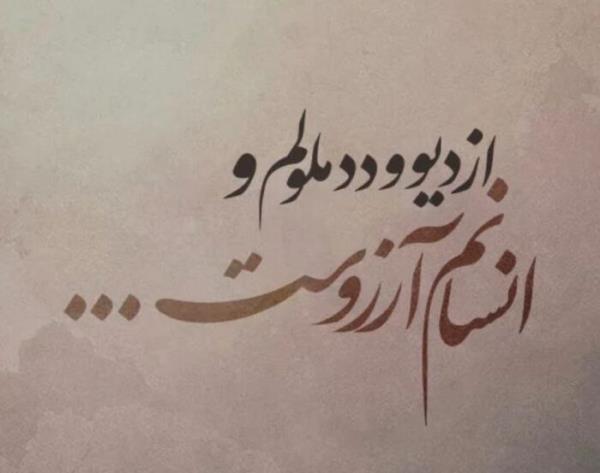 از دیو و دد ملولم و
انسانم آرزوست...